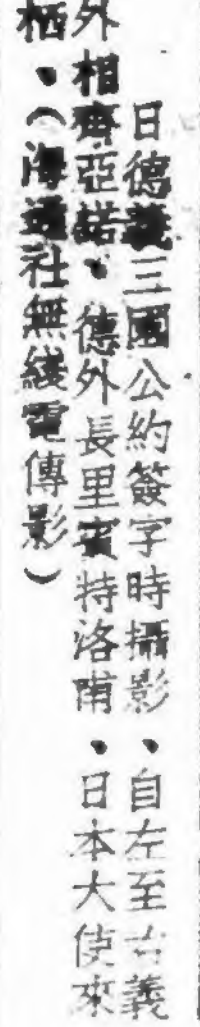 日德義三國公約簽字時攝影、自左至右義
外相齊亞諾、德外長里賓特洛甫、日本大使來
栖、(海通社無綫電傳影)